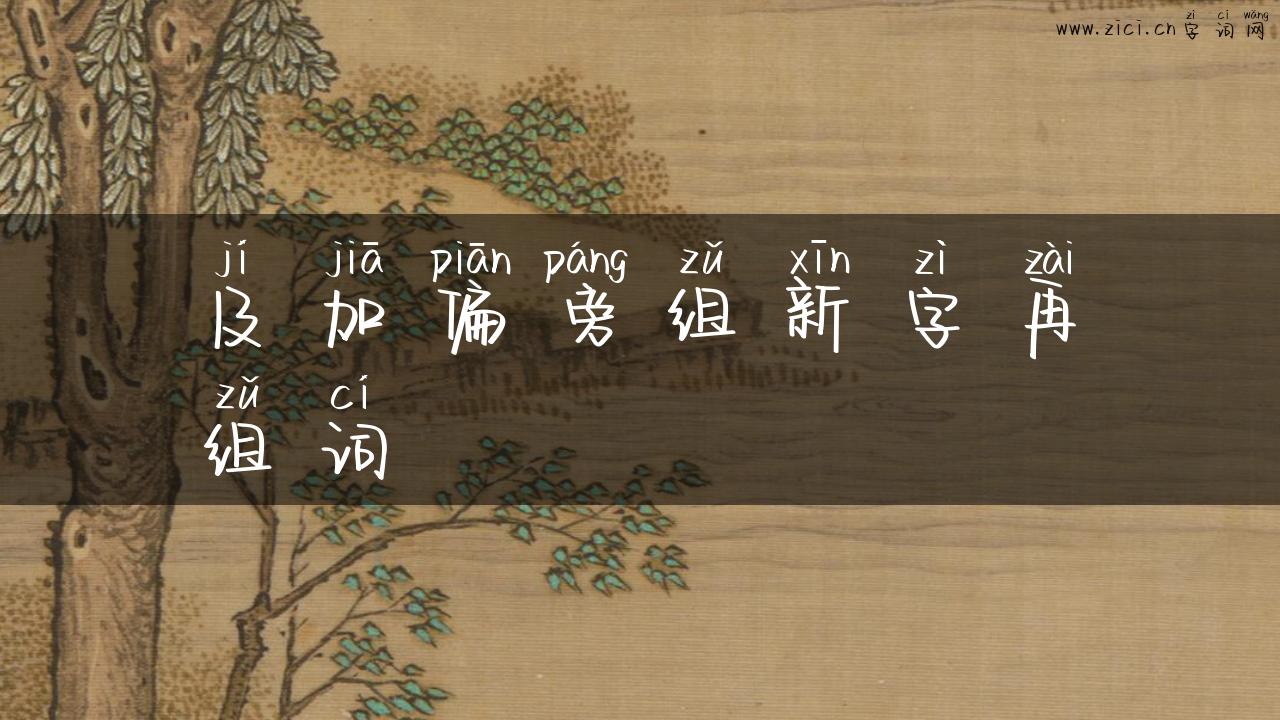 www.zici.cn 字词网
zì cí wǎng
jí jiā piān páng zǔ xīn zì zài
及加偏旁组新字再
zǔ cí
组词